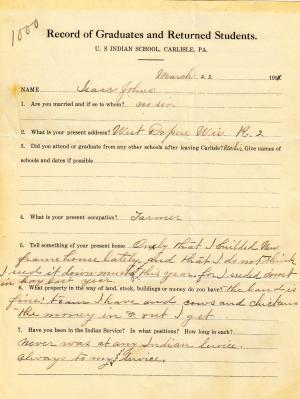 1000
Record of Graduates and Returned Students.
U. S INDIAN SCHOOL, CARLISLE, PA.
March 22 191
NAME Isaac Johns
1. Are you married and if so to whom? no sir.
2. What is your present address? West Depere Wis R. 2
3. Did you attend or graduate from any other schools after leaving Carlisle? Give names
of schools and dates if possible
4. What is your present occupation? Farmer
5. Tell something of your present home Only that I builded New
frame house lately, and that I do not think
I seed it down much this year. for I seeded most
in hay last year
6. What property in the way of land, stock, buildings or money do you have? the land is
fine! team I have and cows and chickens
the money in & out I get.
7. Have you been in the Indian Service? In what positions? How long in each?
Never was at any Indian Service.
Always to my Service.